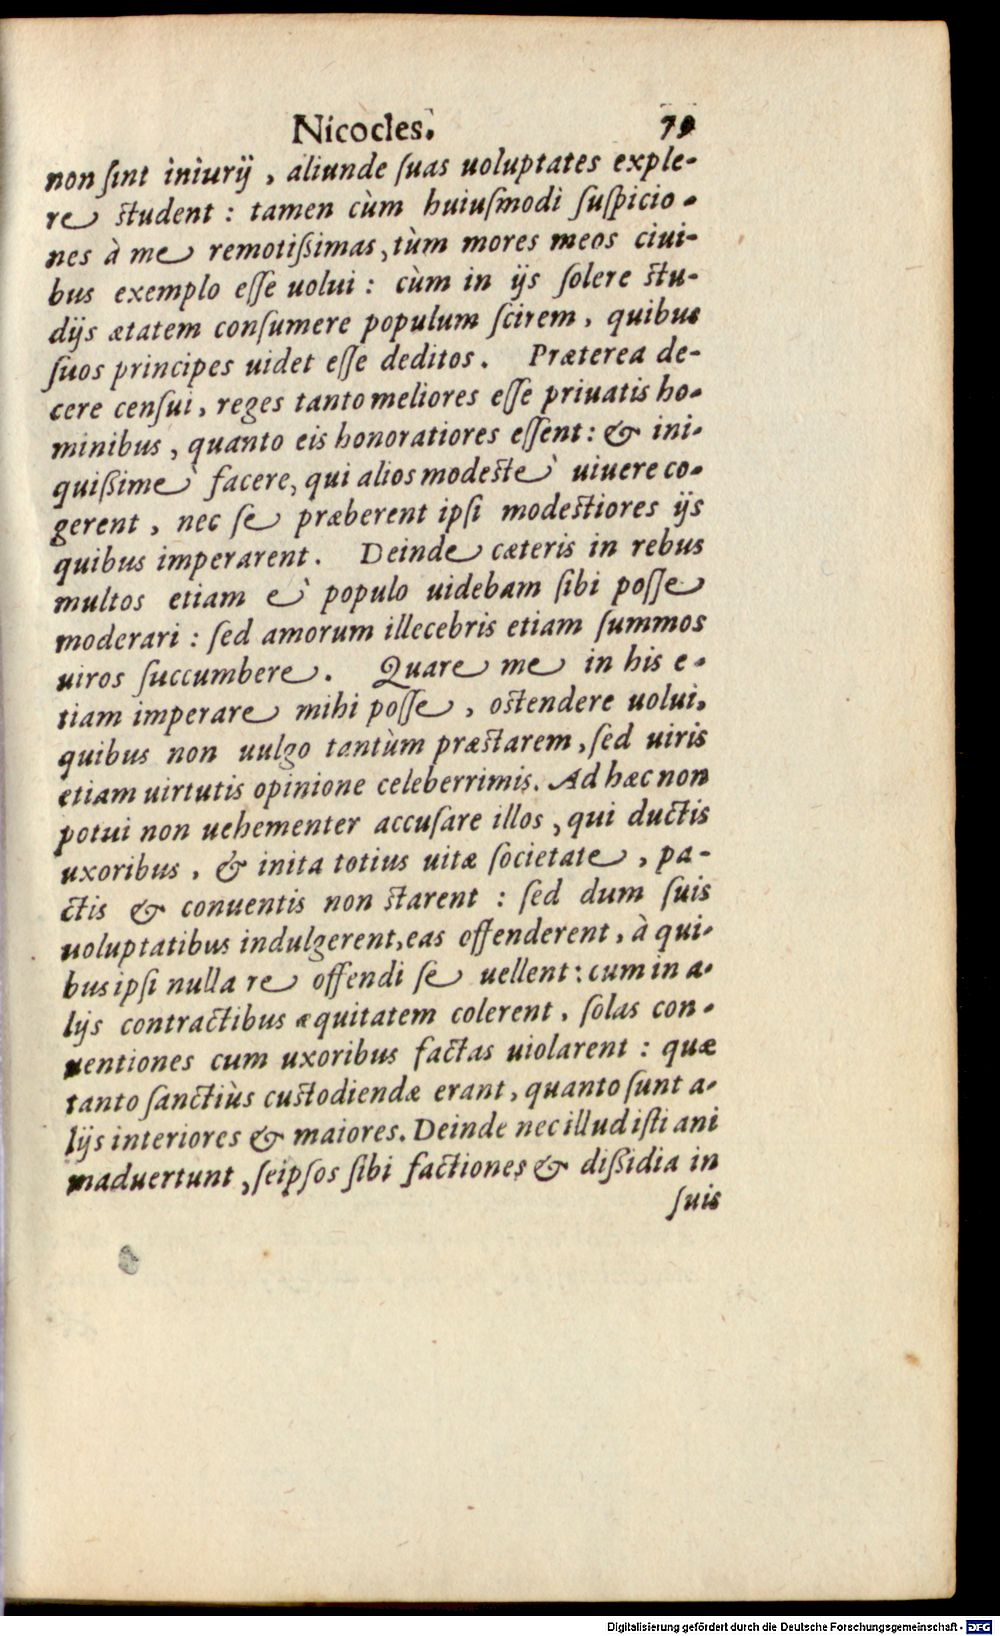 Nicocles. 79
non ſint iniurij, aliunde ſuas uoluptates exple-
re ſtudent: tamen cùm huiuſmodi ſuſpicio-
nes à me remotiſsimas, tùm mores meos ciui-
bus exemplo eſſe uolui: cùm in ijs ſolere ſtu-
dijs ætatem conſumere populum ſcirem, quibus
ſuos principes uidet eſſe deditos. Præterea de-
cere cenſui, reges tanto meliores eſſe priuatis ho-
minibus, quanto eis honoratiores eſſent: & ini-
quiſsimè facere, qui alios modeſtè uiuere co-
gerent, nec ſe præberent ipſi modeſtiores ijs
quibus imperarent. Deinde cæteris in rebus
multos etiam è populo uidebam ſibi poſſe
moderari: ſed amorum illecebris etiam ſummos
uiros ſuccumbere. Quare me in his e-
tiam imperare mihi poſſe, oſtendere uolui,
quibus non uulgo tantùm præſtarem, ſed uiris
etiam uirtutis opinione celeberrimis. Ad hæc non
potui non uehementer accuſare illos, qui ductis
uxoribus, & inita totius uitæ ſocietate, pa-
ctis & conuentis non ſtarent: ſed dum ſuis
uoluptatibus indulgerent, eas offenderent, à qui-
bus ipſi nulla re offendi ſe uellent: cum in a-
lijs contractibus æquitatem colerent, ſolas con-
uentiones cum uxoribus factas uiolarent: quæ
tanto ſanctiùs cuſtodiendæ erant, quanto ſunt a-
lijs interiores & maiores. Deinde nec illud iſti ani
maduertunt, ſeipſos ſibi factiones & diſsidia in
ſuis
Digitalisierung gefördert durch die Deutsche Forschungsgemeinschaft - DFG